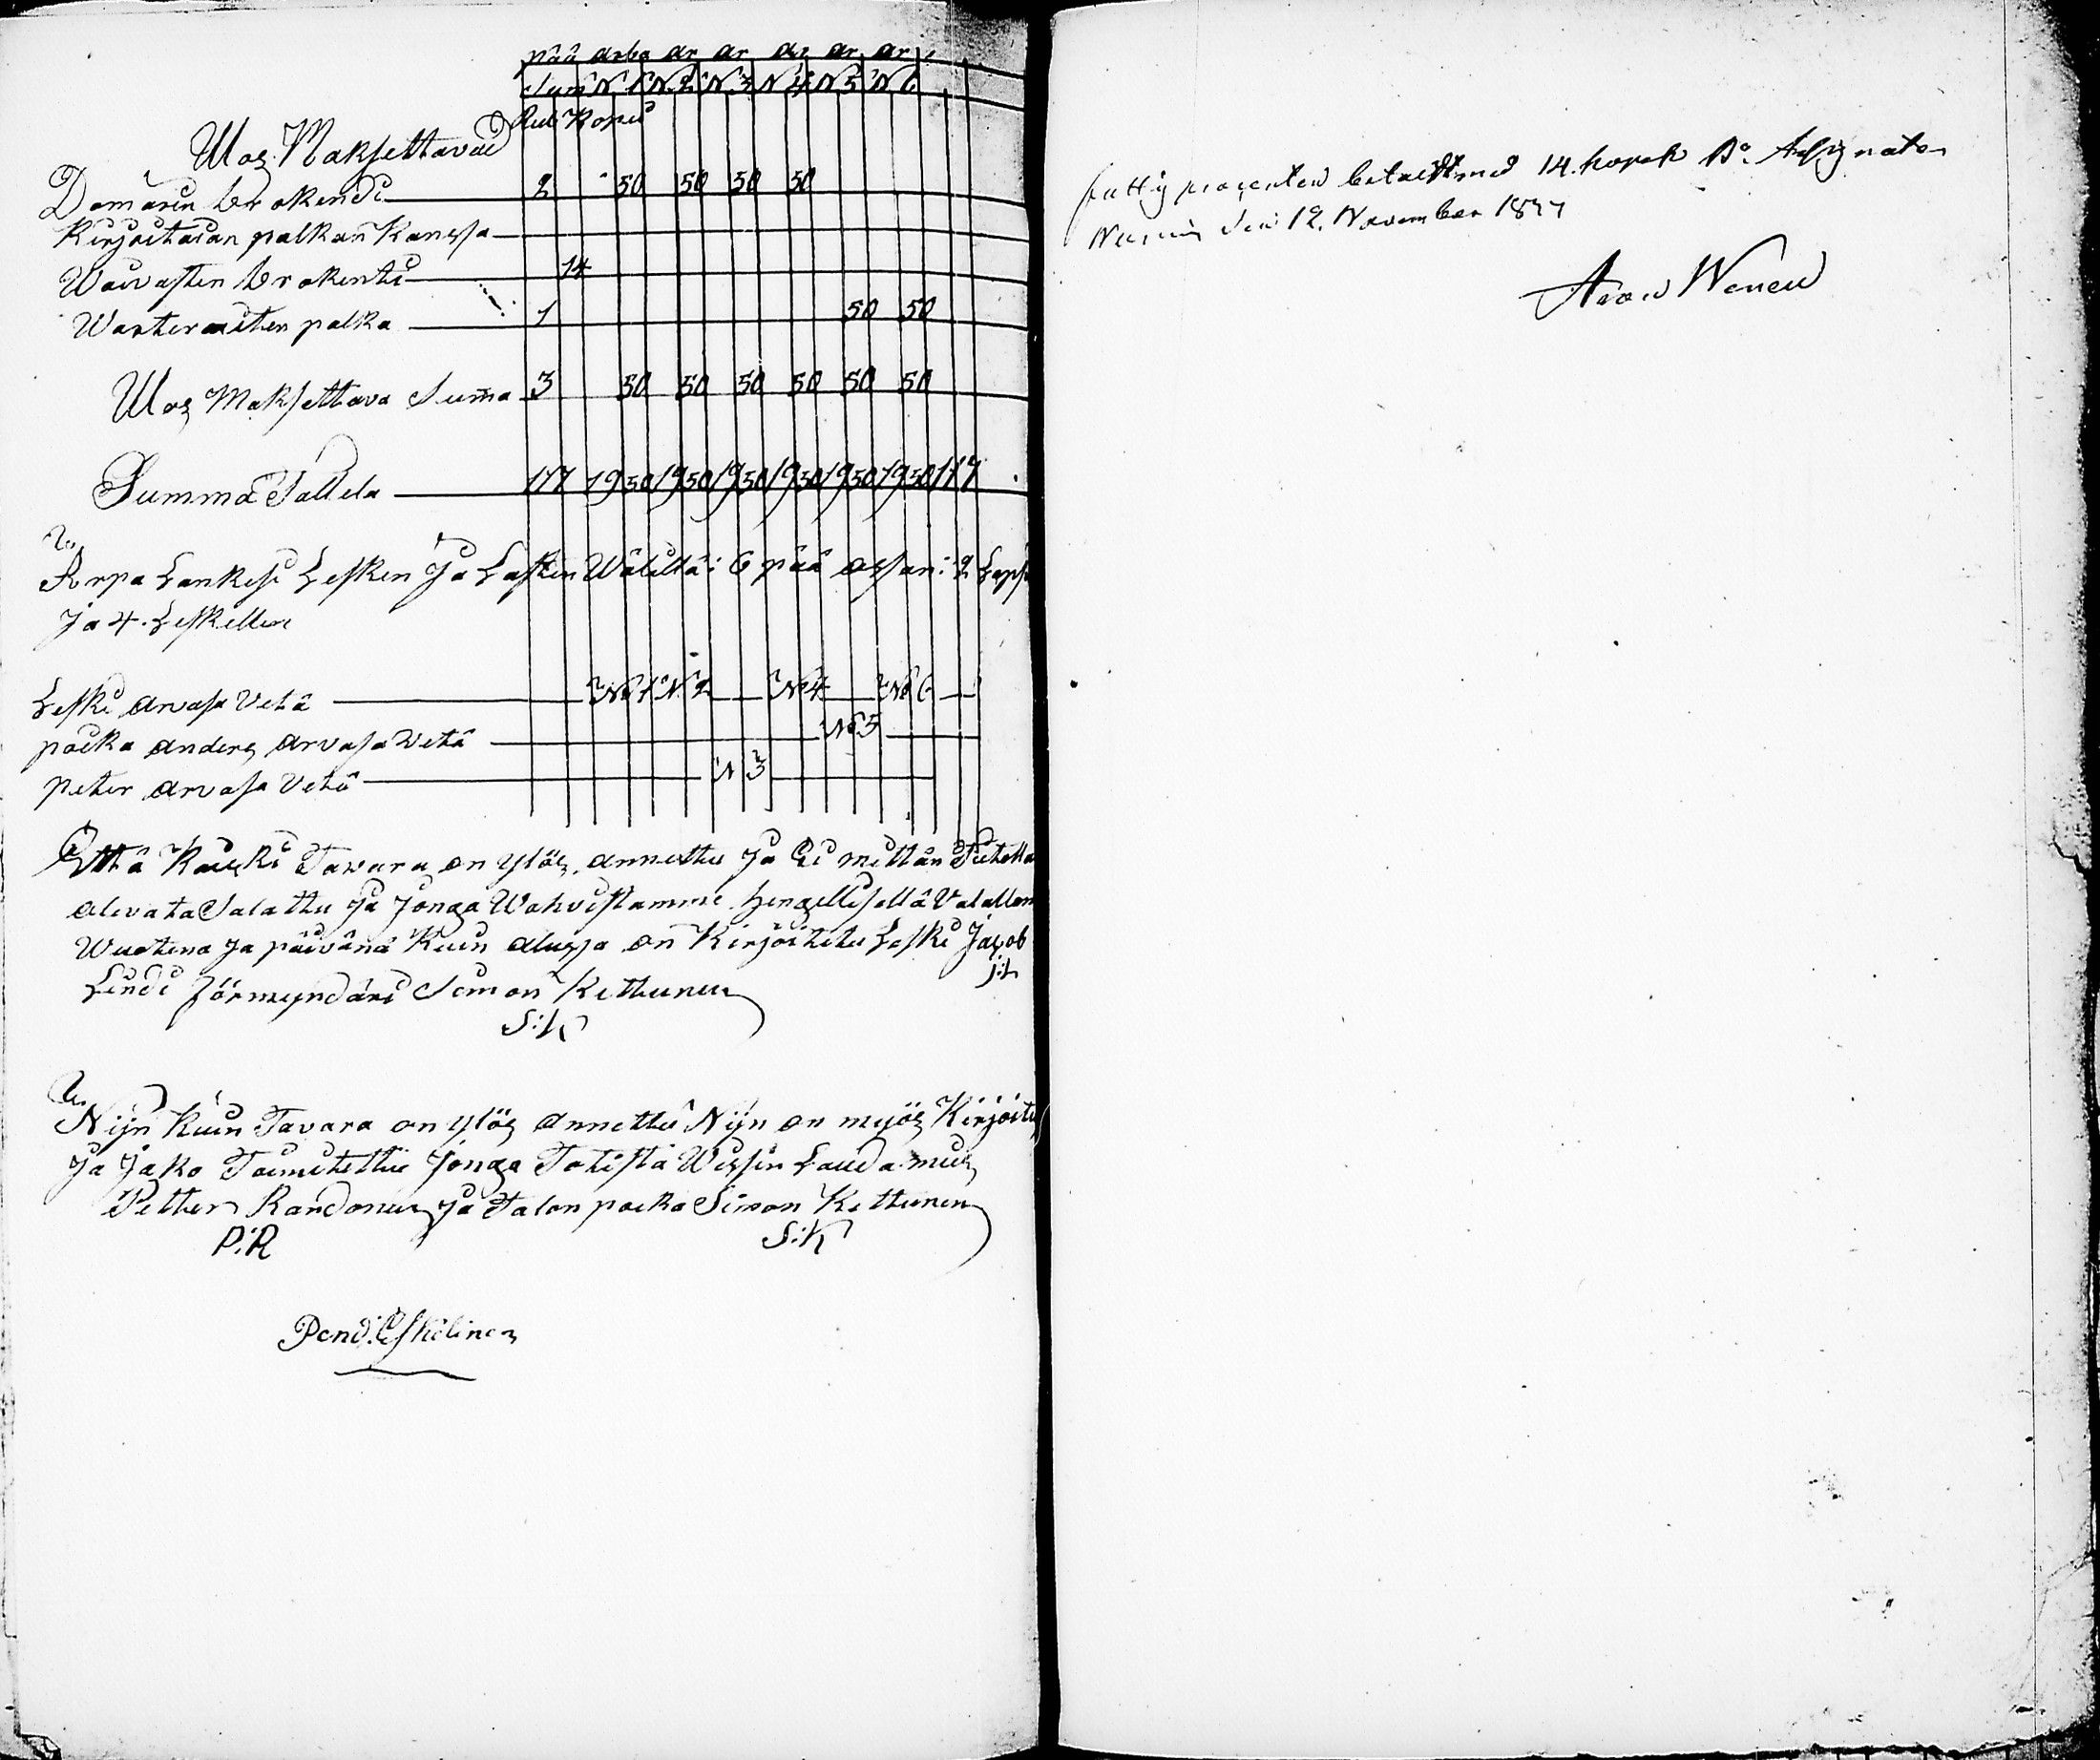 pää arbo ar ar ar ar ar
Sum N 1 N 2 N 3 N 4 N 5 N 6
Rub Kopei
Ulos Maksettavad
Domarin brokendi 2 50 50 50 50
Kirjoitaian palkan Kanssa
Waivasten brokenti 14
Warteraisten palka 1 50 50
Ulos Maksettava Summa 3 50 50 50 50 50 50
Summa Tallela 117 19 50 19 50 19 50 19 50 19 50 19 50 117
Arpa Lankesi Lesken Ja Lasten Wälillä: 6 pää ossan: 2 Lapsi
Ja 4. Leskellen
Leski arvasa Vetä No 1 N 2 No 4 No 6
poika anders arvasa Vetä No 5
peter arvasa Vetä N 3
Että Kaicki Tavara on ylös annettu Ja Ei mittän
olevata Salattu Ja Jonga Wahvistamme hengellisellä Valallan
Wuotena Ja päivänä Kuin alussa on Kirjoitetu Leski Jacob
Lindi förmyndäri Simon Kettunen
S:K
Nijn Kuin Tavara on ylös annettu Nijn on myös Kirjoitu
Ja Jako Toimitettu Jonga Totista Wissin Lauda mus
Petter Randonen Ja Talon poika Simon Kettunen
P:R S:K
Pend. Eskelinen
fattig procenten betalt med 14. kopek Bo Assignaton
den 12. November 1837